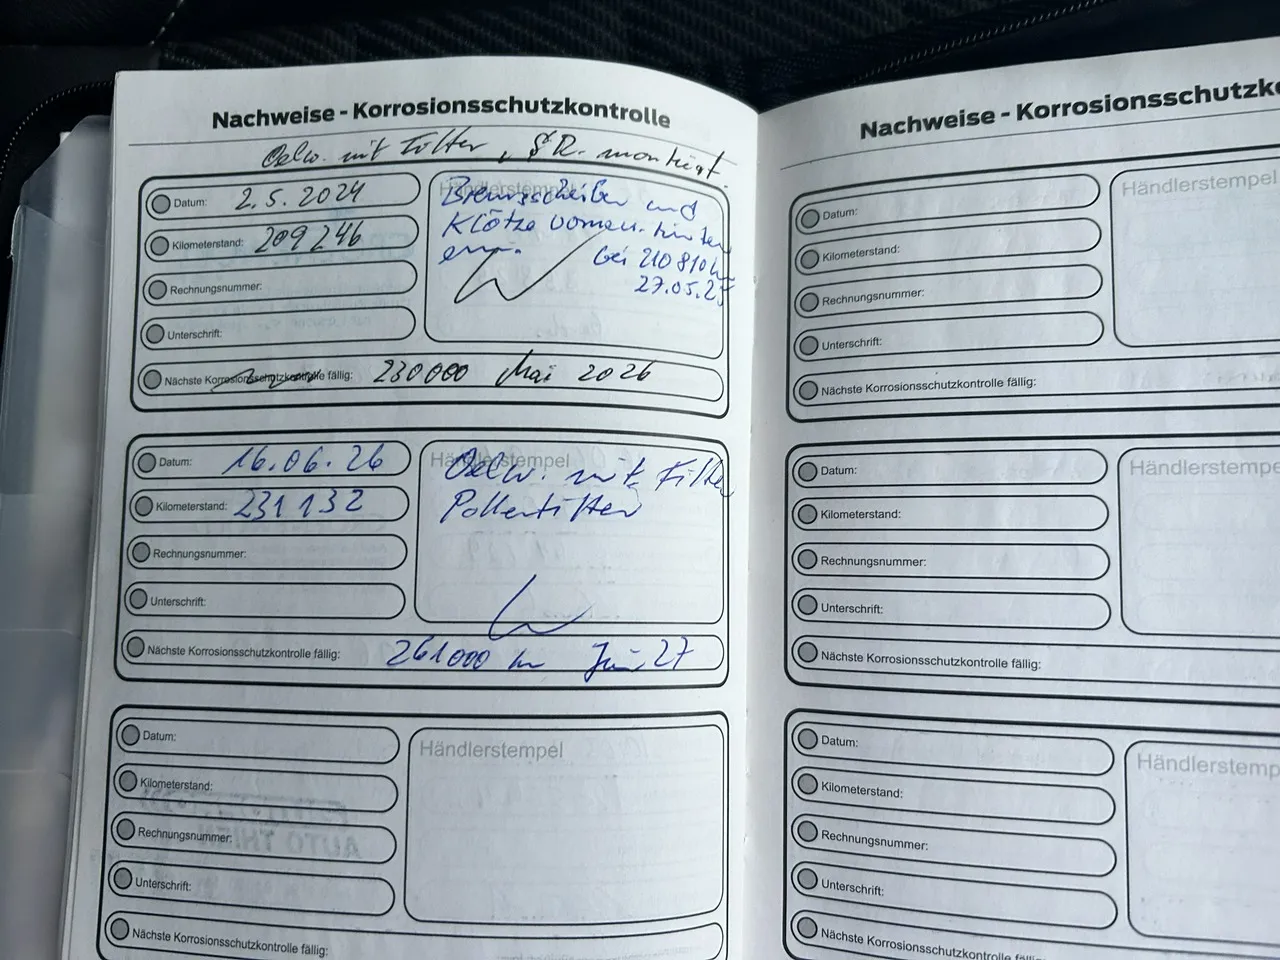 Nachweise - Korrosionsschutzkontrolle
Oelw. mit Filter, SR. montiert.
Datum: 2.5.2024
Kilometerstand: 209246
Rechnungsnummer:
Unterschrift:
Händlerstempel
Bremsscheiben und
Klötze vorne u. hinten
ern.
bei 210810 km
27.05.25
Nächste Korrosionsschutzkontrolle fällig: 230000 Mai 2026
Datum: 16.06.26
Kilometerstand: 231132
Rechnungsnummer:
Unterschrift:
Händlerstempel
Oelw. mit Filter
Pollenfilter
Nächste Korrosionsschutzkontrolle fällig: 261000 km Juni 27
Datum:
Kilometerstand:
Rechnungsnummer:
Unterschrift:
Händlerstempel
Nächste Korrosionsschutzkontrolle fällig:
Nachweise - Korrosionsschutzko
Datum:
Kilometerstand:
Rechnungsnummer:
Unterschrift:
Händlerstempel
Nächste Korrosionsschutzkontrolle fällig:
Datum:
Kilometerstand:
Rechnungsnummer:
Unterschrift:
Händlerstempe
Nächste Korrosionsschutzkontrolle fällig:
Datum:
Kilometerstand:
Rechnungsnummer:
Unterschrift:
Händlerstemp
Nächste Korrosionsschutzkontrolle fällig: